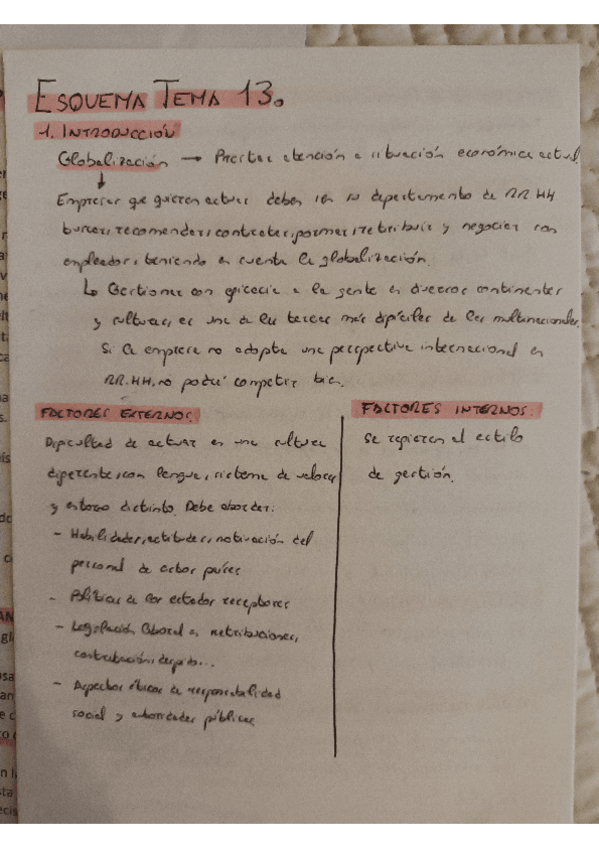 ESQUEMA TEMA 13.
1. INTRODUCCIÓN
Globalización → Prestar atención a situación económica actual.
↓
Empresas que quieren actuar deben con su departamento de RR.HH
buscar, recomendar, contratar, formar, retribuir y negociar con
empleados, teniendo en cuenta la globalización.
↳ Gestionar con eficacia a la gente en diversos continentes
y culturas, es una de las tareas más difíciles de las multinacionales.
Si la empresa no adopta una perspectiva internacional en
RR.HH, no podrá competir bien.
FACTORES EXTERNOS.
Dificultad de actuar en una cultura
diferente, con lengua, sistema de valores
y entorno distinto. Debe abordar:
- Habilidades, actitudes, motivación del
personal de otros países
- Políticas de los estados receptores
- Legislación laboral en retribuciones,
contratación, despido...
- Aspectos éticos de responsabilidad
social y autoridades públicas
FACTORES INTERNOS.
Se refieren al estilo
de gestión.